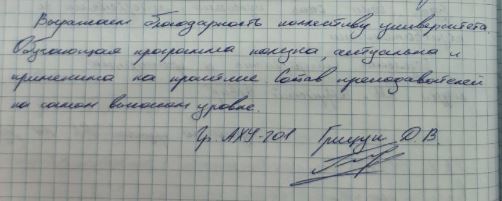 Выражаем благодарность коллективу университета.
Обучающая программа полезна, актуальна и
применима на практике. Состав преподавателей
на самом высоком уровне.
Гр. АХУ-201 Грицук Д.В.